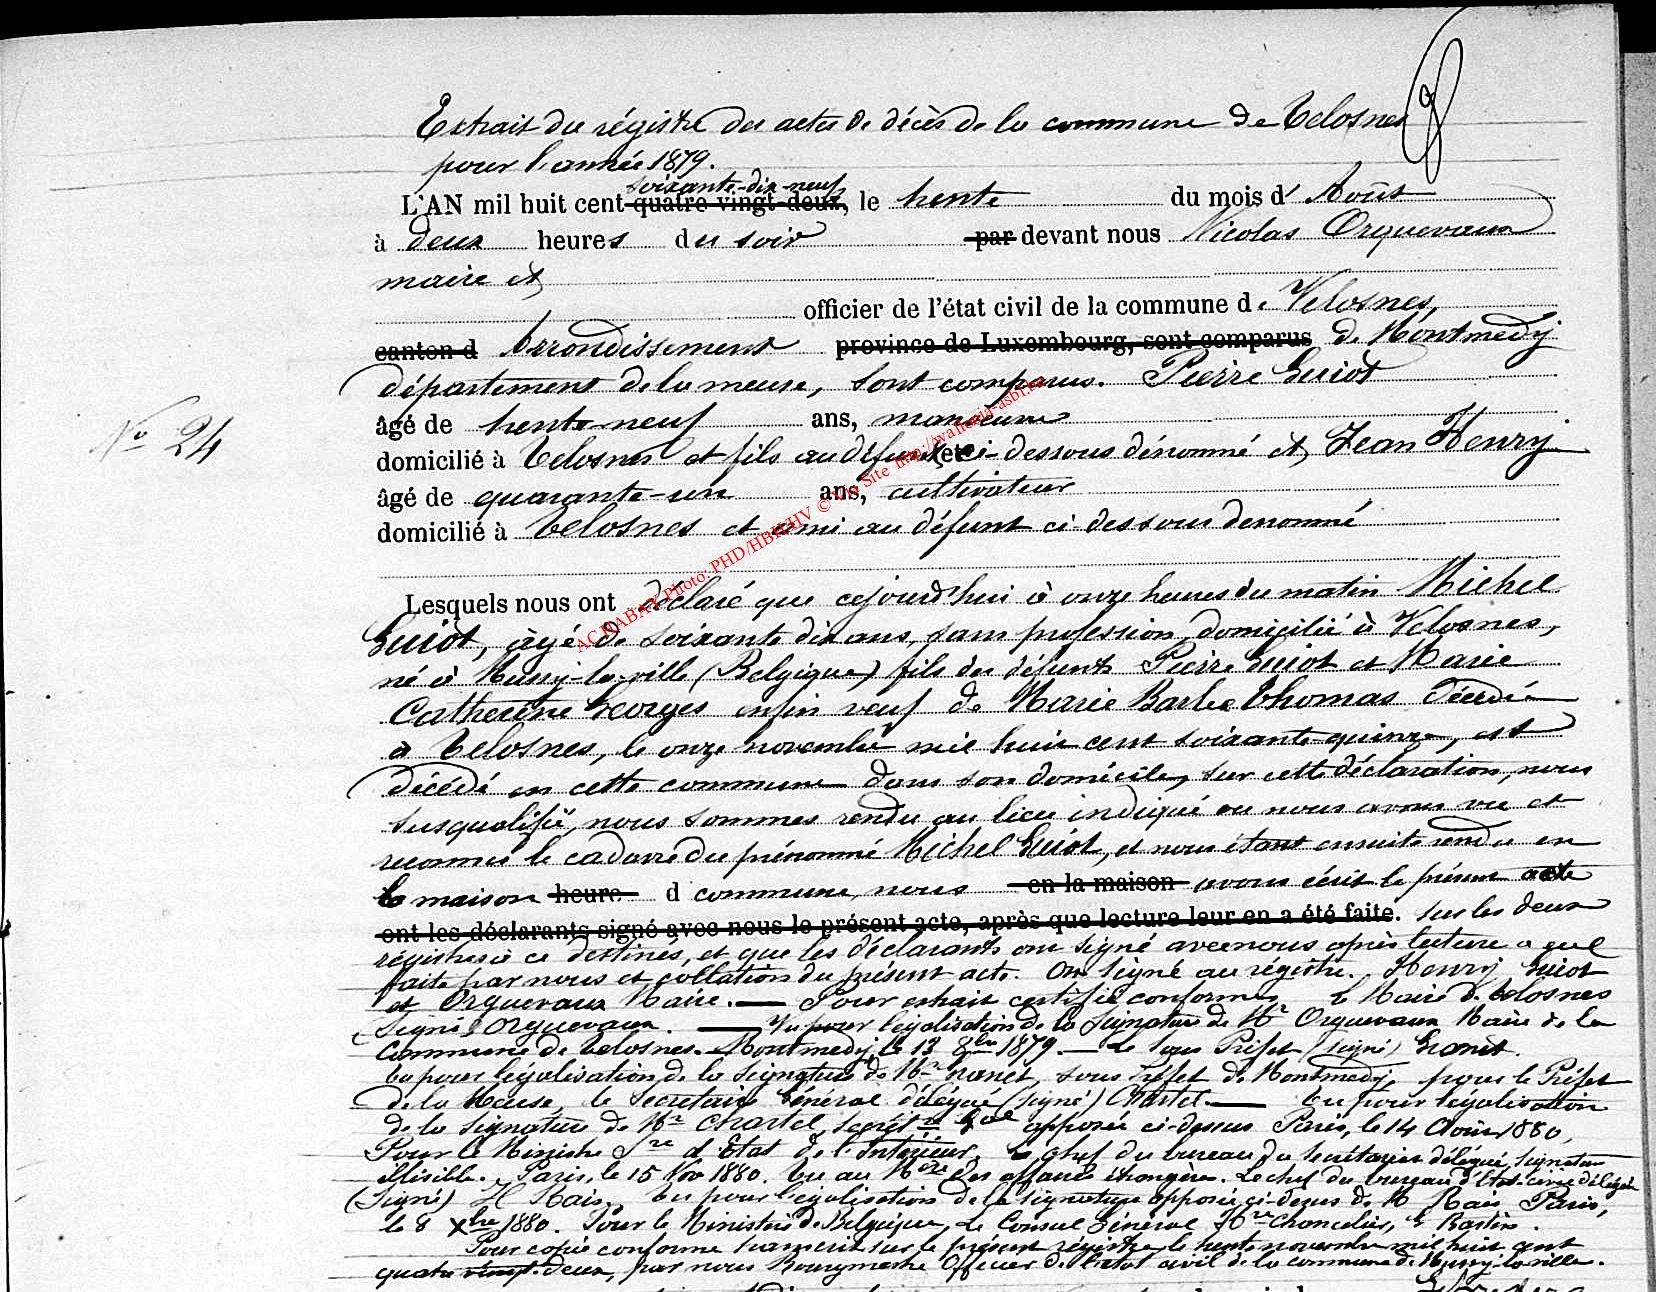 Extrait du régistre des actes de décès de la commune de Velosnes
pour l'année 1879.
soixante-dix-neuf
L'AN mil huit cent quatre-vingt-deux, le trente du mois d' Août
à deux heures du soir par devant nous Nicolas Orquevaux
maire et
officier de l'état civil de la commune de Velosnes,
canton d Arrondissement province de Luxembourg, sont comparus de Montmedy
département de la meuse, sont comparus. Pierre Guiot
âgé de trente-neuf ans, manœuvre
domicilié à Velosnes et fils au défunt et ci-dessous dénommé et Jean Henry
N° 24
âgé de quarante-un ans, cultivateur
domicilié à Velosnes et ami au défunt ci-dessous denommé
Lesquels nous ont déclaré que cejourd'hui à onze heures du matin Michel
Guiot, âgé de soixante dix ans, sans profession, domicilié à Velosnes,
né à Mussy-la-ville (Belgique) fils des défunts Pierre Guiot et Marie
Catherine Georges enfin veuf de Marie Barbe Thomas décédée
à Velosnes, le onze novembre mil huit cent soixante quinze, est
décédé en cette commune dans son domicile, sur cette déclaration, nous
susqualifié, nous sommes rendu au lieu indiqué ou nous avons vu et
reconnu le cadavre du prénommé Michel Guiot, et nous étant ensuite rendu en
la maison heure d commune, nous en la maison avons écrit le présent acte
ont les déclarants signé avec nous le présent acte, après que lecture leur en a été faite. sur les deux
régistres à ce destinés, et que les déclarants ont signé avec nous après lecture a eux
faite par nous et collation du présent acte. Ont signé au régistre. Henry Guiot
et Orquevaux Maire. — Pour extrait certifié conforme, le Maire de Velosnes
Signé Orquevaux. — Vu pour légalisation de la signature de Mr Orquevaux Maire de la
Commune de Velosnes. Montmedy, le 13 8bre 1879. — Le Sous Préfet (signé)
Vu pour légalisation de la signature de Mr, sous Préfet de Montmedy, pour le Préfet
de la Meuse, le Secretaire Général délégué (signé) Chartel. — Vu pour légalisation
de la signature de Mr Chartel, Secrétre Gal apposée ci-dessus Paris, le 14 Août 1880,
Pour le Ministre Sre d'Etat de l'Intérieur, le chef du bureau du Secrétariat délégué, signature
illisible. Paris, le 15 Nov 1880. Vu au Mère des affaires étrangères. Le chef du bureau d'Etat civil délégué
(Signé) H Rais. Vu pour légalisation de la signature apposée ci-dessus de M Rais Paris,
le 8 Xbre 1880. Pour le Ministre de Belgique, Le Consul Général, Chancelier, Bastin.
Pour copie conforme transcrit sur le présent régistre le trente novembre mil huit cent
quatre vingt-deux, par nous Bourgmestre Officier de l'état civil de la commune de Mussy-la-ville.
AC HABAY Photo: PHD/HBH/HV © Via Site http://wallonia-asbl.be